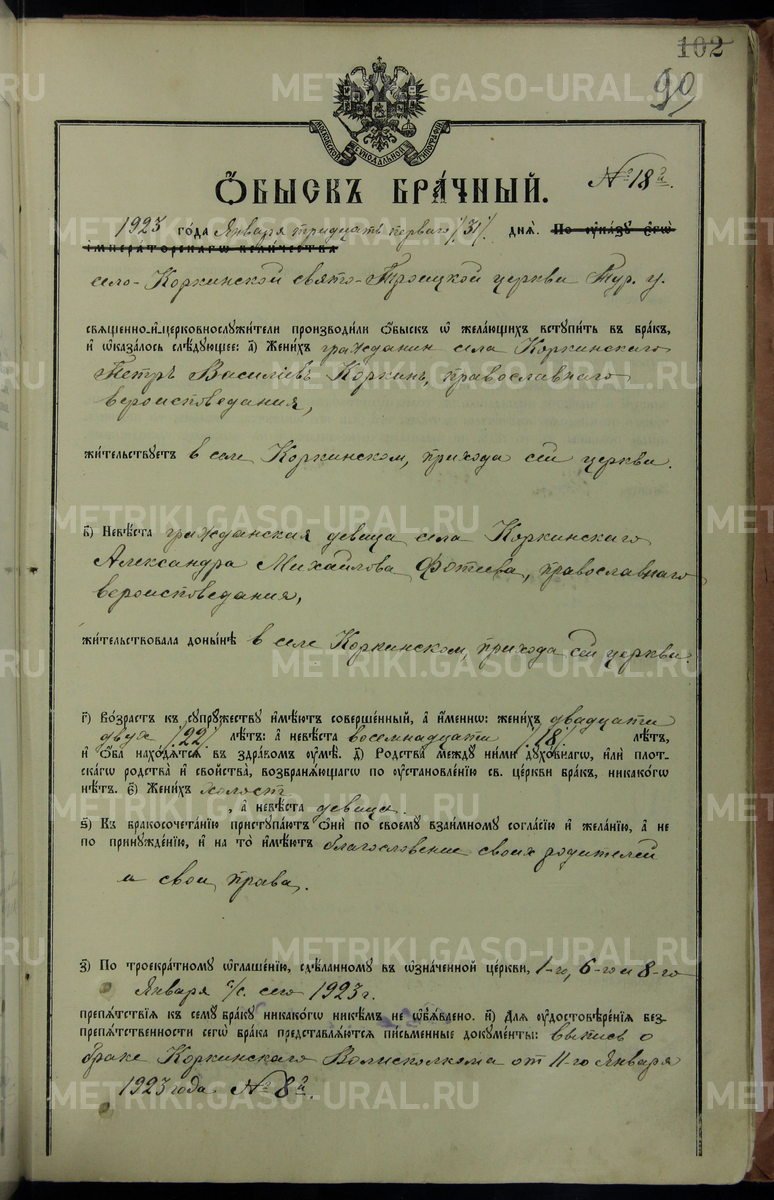 102
90
МОСКОВСКОЙ СѴНОДАЛЬНОЙ ТИПОГРАФІИ
Ѻ҆БЫСКЪ БРА́ЧНЫЙ. № 18й.
1923 го́да Января тридцать перваго /31/. днѧ̀. По ᲂу҆ка́зꙋ є҆гѡ̀
и҆мпера́торскагѡ вели́чества
село-Коркинской свято-Троицкой церкви Тур. у.
свѧще́нно-и҆-церковнослꙋжи́тели производи́ли ѻ҆́быскъ ѡ҆ жела́ющихъ встꙋпи́ть въ бра́къ,
и҆ ѡ҆каза́лось слѣ́дꙋющее: а҃) Жени́хъ гражданин села Коркинскаго
Петръ Василіевъ Коркинъ, православнаго
вероисповедания,
жи́тельствꙋетъ в селе Коркинском, прихода сей церкви.
в҃) Невѣ́ста гражданская девица села Коркинскаго
Александра Михайлова Фотиева, православнаго
вероисповедания,
жи́тельствовала доны́нѣ в селе Коркинском, прихода сей церкви.
г҃) Во́зрастъ къ сꙋпрꙋ́жествꙋ и҆мѣ́ютъ соверше́нный, а҆ и҆́менно: жени́хъ двадцати
двух /22/ лѣ́тъ: а҆ невѣ́ста восемнадцати /18/. лѣ́тъ,
и҆ ѻ҆́ба нахо́дѧтсѧ въ здра́вомъ ᲂу҆мѣ̀. д҃) Родства̀ междꙋ ни́ми дꙋхо́внагѡ, и҆лѝ плот-
ска́гѡ родства̀ и҆ сво́йства, возбранѧ́ющагѡ по ᲂу҆становле́нїю св. це́ркви бра́къ, никако́гѡ
нѣ́тъ. є҃) Жени́хъ холост
, а҆ невѣ́ста девица.
ѕ҃) Къ бракосочета́нїю пристꙋпа́ютъ ѻ҆нѝ по своемꙋ̀ взаи́мномꙋ согла́сїю и҆ жела́нїю, а҆ не
по принꙋжде́нїю, и҆ на то̀ и҆мѣ́ютъ благословение своих родителей
и свои права.
з҃) По троекра́тномꙋ ѡ҆глаше́нїю, сдѣ́ланномꙋ въ ѡ҆зна́ченной це́ркви, 1-го, 6-го и 8-го
Января с/с. сего 1923 г.
препѧ́тствїѧ къ семꙋ̀ бра́кꙋ никако́гѡ никѣ́мъ не ѡ҆б̾ѧ́влено. и҃) Длѧ ᲂу҆достовѣре́нїѧ без-
препѧ́тственности сегѡ̀ бра́ка представлѧ́ютсѧ пи́сьменные докꙋме́нты: выпись о
браке Коркинскаго Волисполкома от 11-го Января
1923 года № 8й.
METRIKI.GASO-URAL.RU